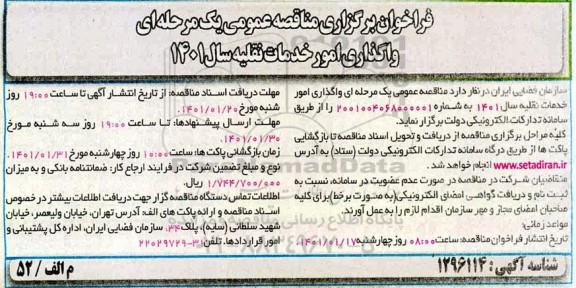 فراخوان برگزاری مناقصه عمومی یک مرحله‌ای
واگذاری امور خدمات نقلیه سال ۱۴۰۱
سازمان فضایی ایران در نظر دارد مناقصه عمومی یک مرحله ای واگذاری امور
خدمات نقلیه سال ۱۴۰۱ به شماره ۲۰۰۱۰۰۴۰۶۸۰۰۰۰۰۱ را از طریق
سامانه تدارکات الکترونیکی دولت برگزار نماید.
کلیه مراحل برگزاری مناقصه از دریافت و تحویل اسناد مناقصه تا بازگشایی
پاکت ها از طریق درگاه سامانه تدارکات الکترونیکی دولت (ستاد) به آدرس
www.setadiran.ir انجام خواهد شد.
متقاضیان شرکت در مناقصه در صورت عدم عضویت در سامانه، نسبت به
ثبت نام و دریافت گواهی امضای الکترونیکی (به صورت برخط) برای کلیه
صاحبان امضای مجاز و مهر سازمان اقدام لازم را به عمل آورند.
مواعد زمانی:
تاریخ انتشار فراخوان مناقصه: ساعت ۰۸:۰۰ روز چهارشنبه ۱۴۰۱/۰۱/۱۷
مهلت دریافت اسناد مناقصه: از تاریخ انتشار آگهی تا ساعت ۱۹:۰۰ روز
شنبه مورخ ۱۴۰۱/۰۱/۲۰.
مهلت ارسال پیشنهادها: تا ساعت ۱۹:۰۰ روز سه شنبه مورخ
۱۴۰۱/۰۱/۳۰
زمان بازگشائی پاکت ها: ساعت ۱۰:۰۰ روز چهارشنبه مورخ ۱۴۰۱/۰۱/۳۱.
نوع و مبلغ تضمین شرکت در فرایند ارجاع کار: ضمانتنامه بانکی و به میزان
۱/۷۴۴/۷۰۰/۰۰۰ ریال.
اطلاعات تماس دستگاه مناقصه گزار جهت دریافت اطلاعات بیشتر در خصوص
اسناد مناقصه و ارائه پاکت های الف: آدرس تهران، خیابان ولیعصر، خیابان
شهید سلطانی (سایه)، پلاک ۳۴، سازمان فضایی ایران، اداره کل پشتیبانی و
امور قراردادها. تلفن: ۳۱-۲۲۰۲۹۷۲۹
شناسه آگهی: ۱۲۹۶۱۱۴
م الف / ۵۲